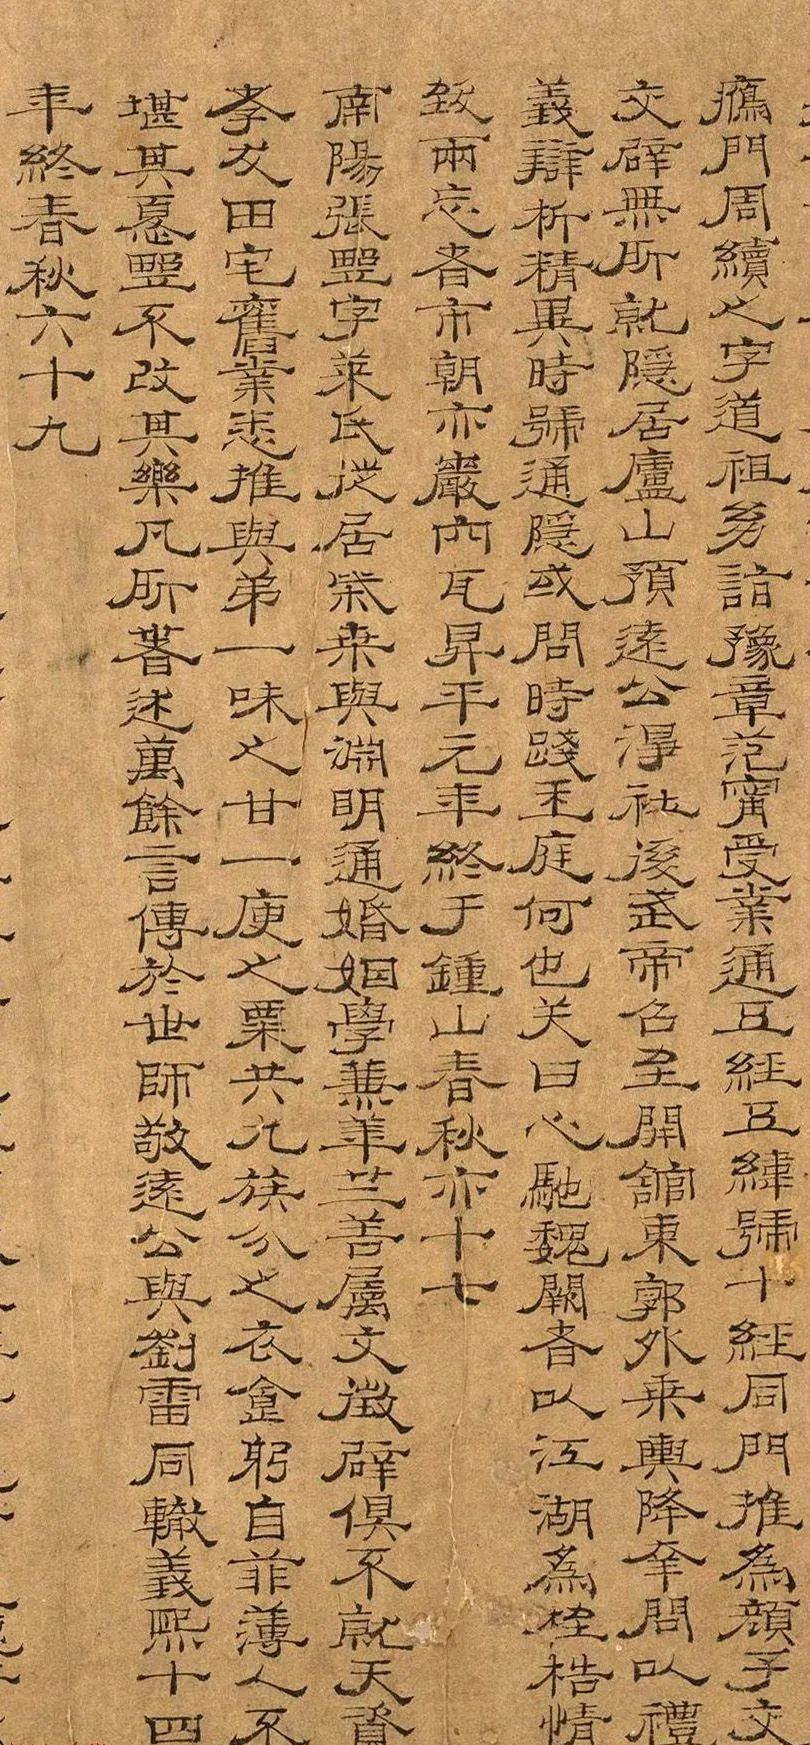 鴈門周續之字道祖幼詣豫章范甯受業通五經五緯號十經同門推為顏子交
交辟無所就隱居廬山預遠公淨社後武帝召至開館東郭外乗輿降幸問以禮
義辯析精異時號通隱或問時踐王庭何也笑曰心馳魏闕者以江湖為桎梏情
致兩忘者市朝亦巖穴耳昇平元年終于鍾山春秋亦十七
南陽張野字萊民徙居柴桒與淵明通婚姻學兼華竺善属文徵辟俱不就天資
孝友田宅舊業悉推與弟一味之甘一庾之粟共九族分之衣食躬自菲薄人不
堪其憂野不改其樂凡所著述萬餘言傳於世師敬遠公與劉雷同轍義熙十四
年終春秋六十九